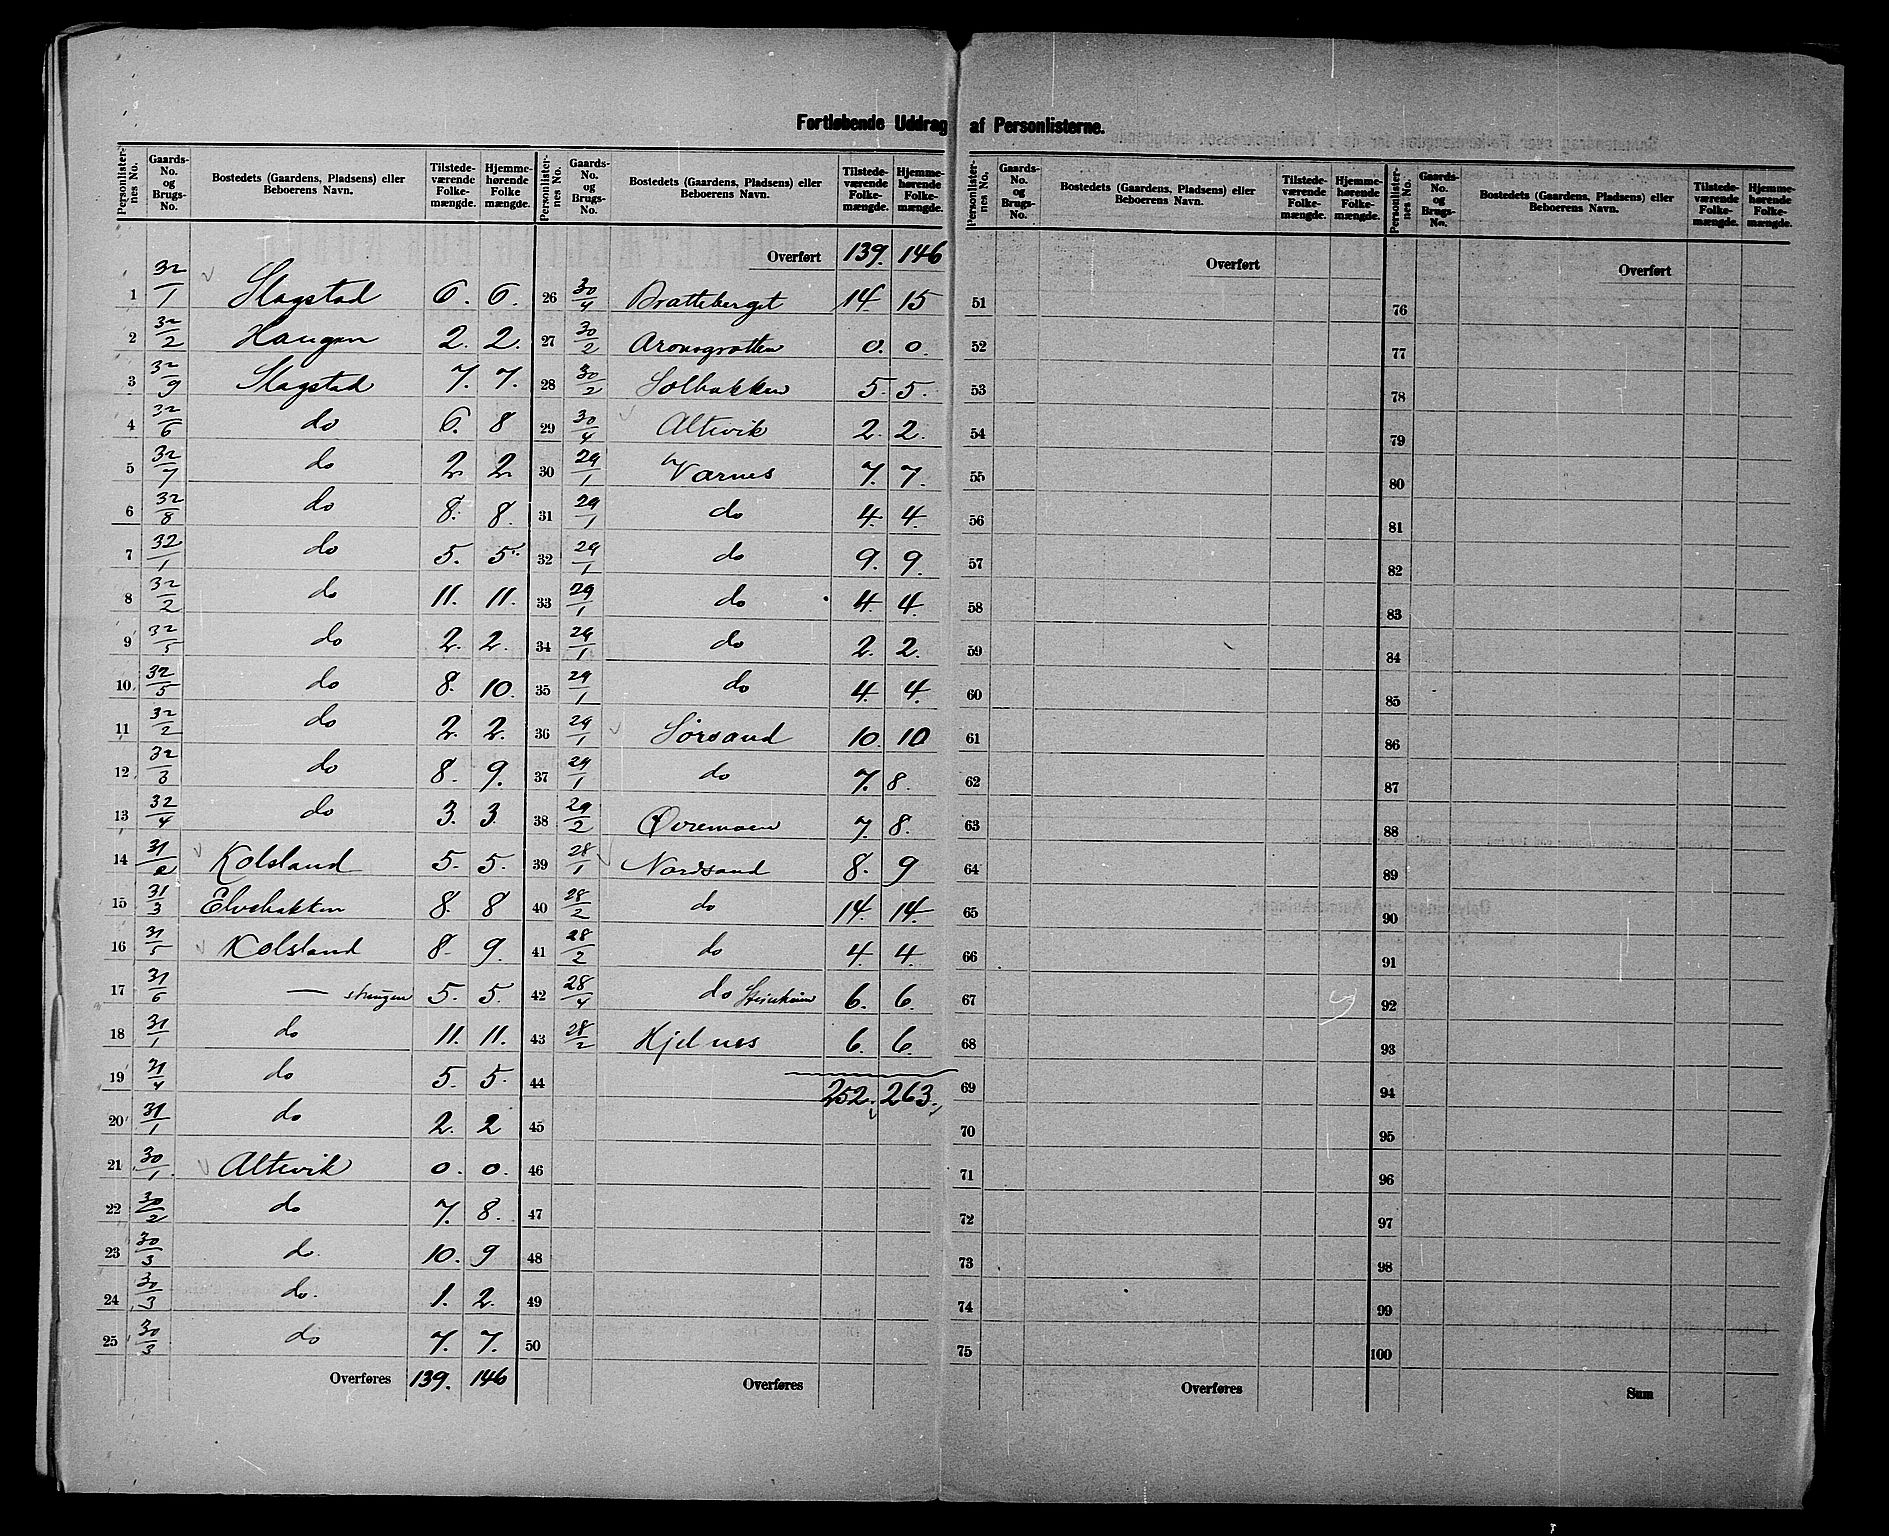 Fortløbende Uddrag af Personlisterne.
Personlisternes No. Gaards-No. og Brugs-No. Bostedets (Gaardens, Pladsens) eller Beboerens Navn. Tilstedeværende Folkemængde. Hjemmehørende Folkemængde.
1 32/1 Slagstad 6. 6.
2 32/2 Haugen 2. 2.
3 32/9 Slagstad 7. 7.
4 32/6 do 6. 8
5 32/7 do 2 2
6 32/8 do 8. 8.
7 32/1 do 5. 5.
8 32/2 do 11. 11.
9 32/5 do 2. 2.
10 32/5 do 8. 10.
11 32/2 do 2. 2.
12 32/3 do 8. 9.
13 32/4 do 3. 3.
14 31/2 Kolsland 5. 5.
15 31/3 Elvebakken 8. 8
16 31/5 Kolsland 8. 9.
17 31/6 — strangen 5. 5.
18 31/1 do 11. 11.
19 31/4 do 5. 5.
20 31/1 do 2. 2
21 30/1. Altevik 0. 0.
22 30/2 do 7. 8.
23 30/3 do. 10. 9
24 30/3 do. 1. 2.
25 30/3 do 7. 7.
Overføres 139. 146
Personlisternes No. Gaards-No. og Brugs-No. Bostedets (Gaardens, Pladsens) eller Beboerens Navn. Tilstedeværende Folkemængde. Hjemmehørende Folkemængde.
Overført 139. 146
26 30/4 Bratteberget 14. 15
27 30/2 Aronsgrotten 0. 0.
28 30/2 Solbakken 5. 5.
29 30/4 Altevik 2. 2.
30 29/1 Varnes 7. 7.
31 29/1 do 4. 4.
32 29/1 do 9. 9.
33 29/1 do 4. 4.
34 29/1 do 2. 2.
35 29/1 do 4. 4.
36 29/1 Sørsand 10. 10
37 29/1 do 7. 8.
38 29/2 Øvremoen 7. 8.
39 28/1 Nordsand 8. 9
40 28/2 do 14. 14.
41 28/2 do 4. 4.
42 28/4 do Steinheim 6. 6.
43 28/2 Hjelnes 6. 6.
44 252. 263.
45
46
47
48
49
50
Overføres
Personlisternes No. Gaards-No. og Brugs-No. Bostedets (Gaardens, Pladsens) eller Beboerens Navn. Tilstedeværende Folkemængde. Hjemmehørende Folkemængde.
Overført
51
52
53
54
55
56
57
58
59
60
61
62
63
64
65
66
67
68
69
70
71
72
73
74
75
Overføres
Personlisternes No. Gaards-No. og Brugs-No. Bostedets (Gaardens, Pladsens) eller Beboerens Navn. Tilstedeværende Folkemængde. Hjemmehørende Folkemængde.
Overført
76
77
78
79
80
81
82
83
84
85
86
87
88
89
90
91
92
93
94
95
96
97
98
99
100
Sum